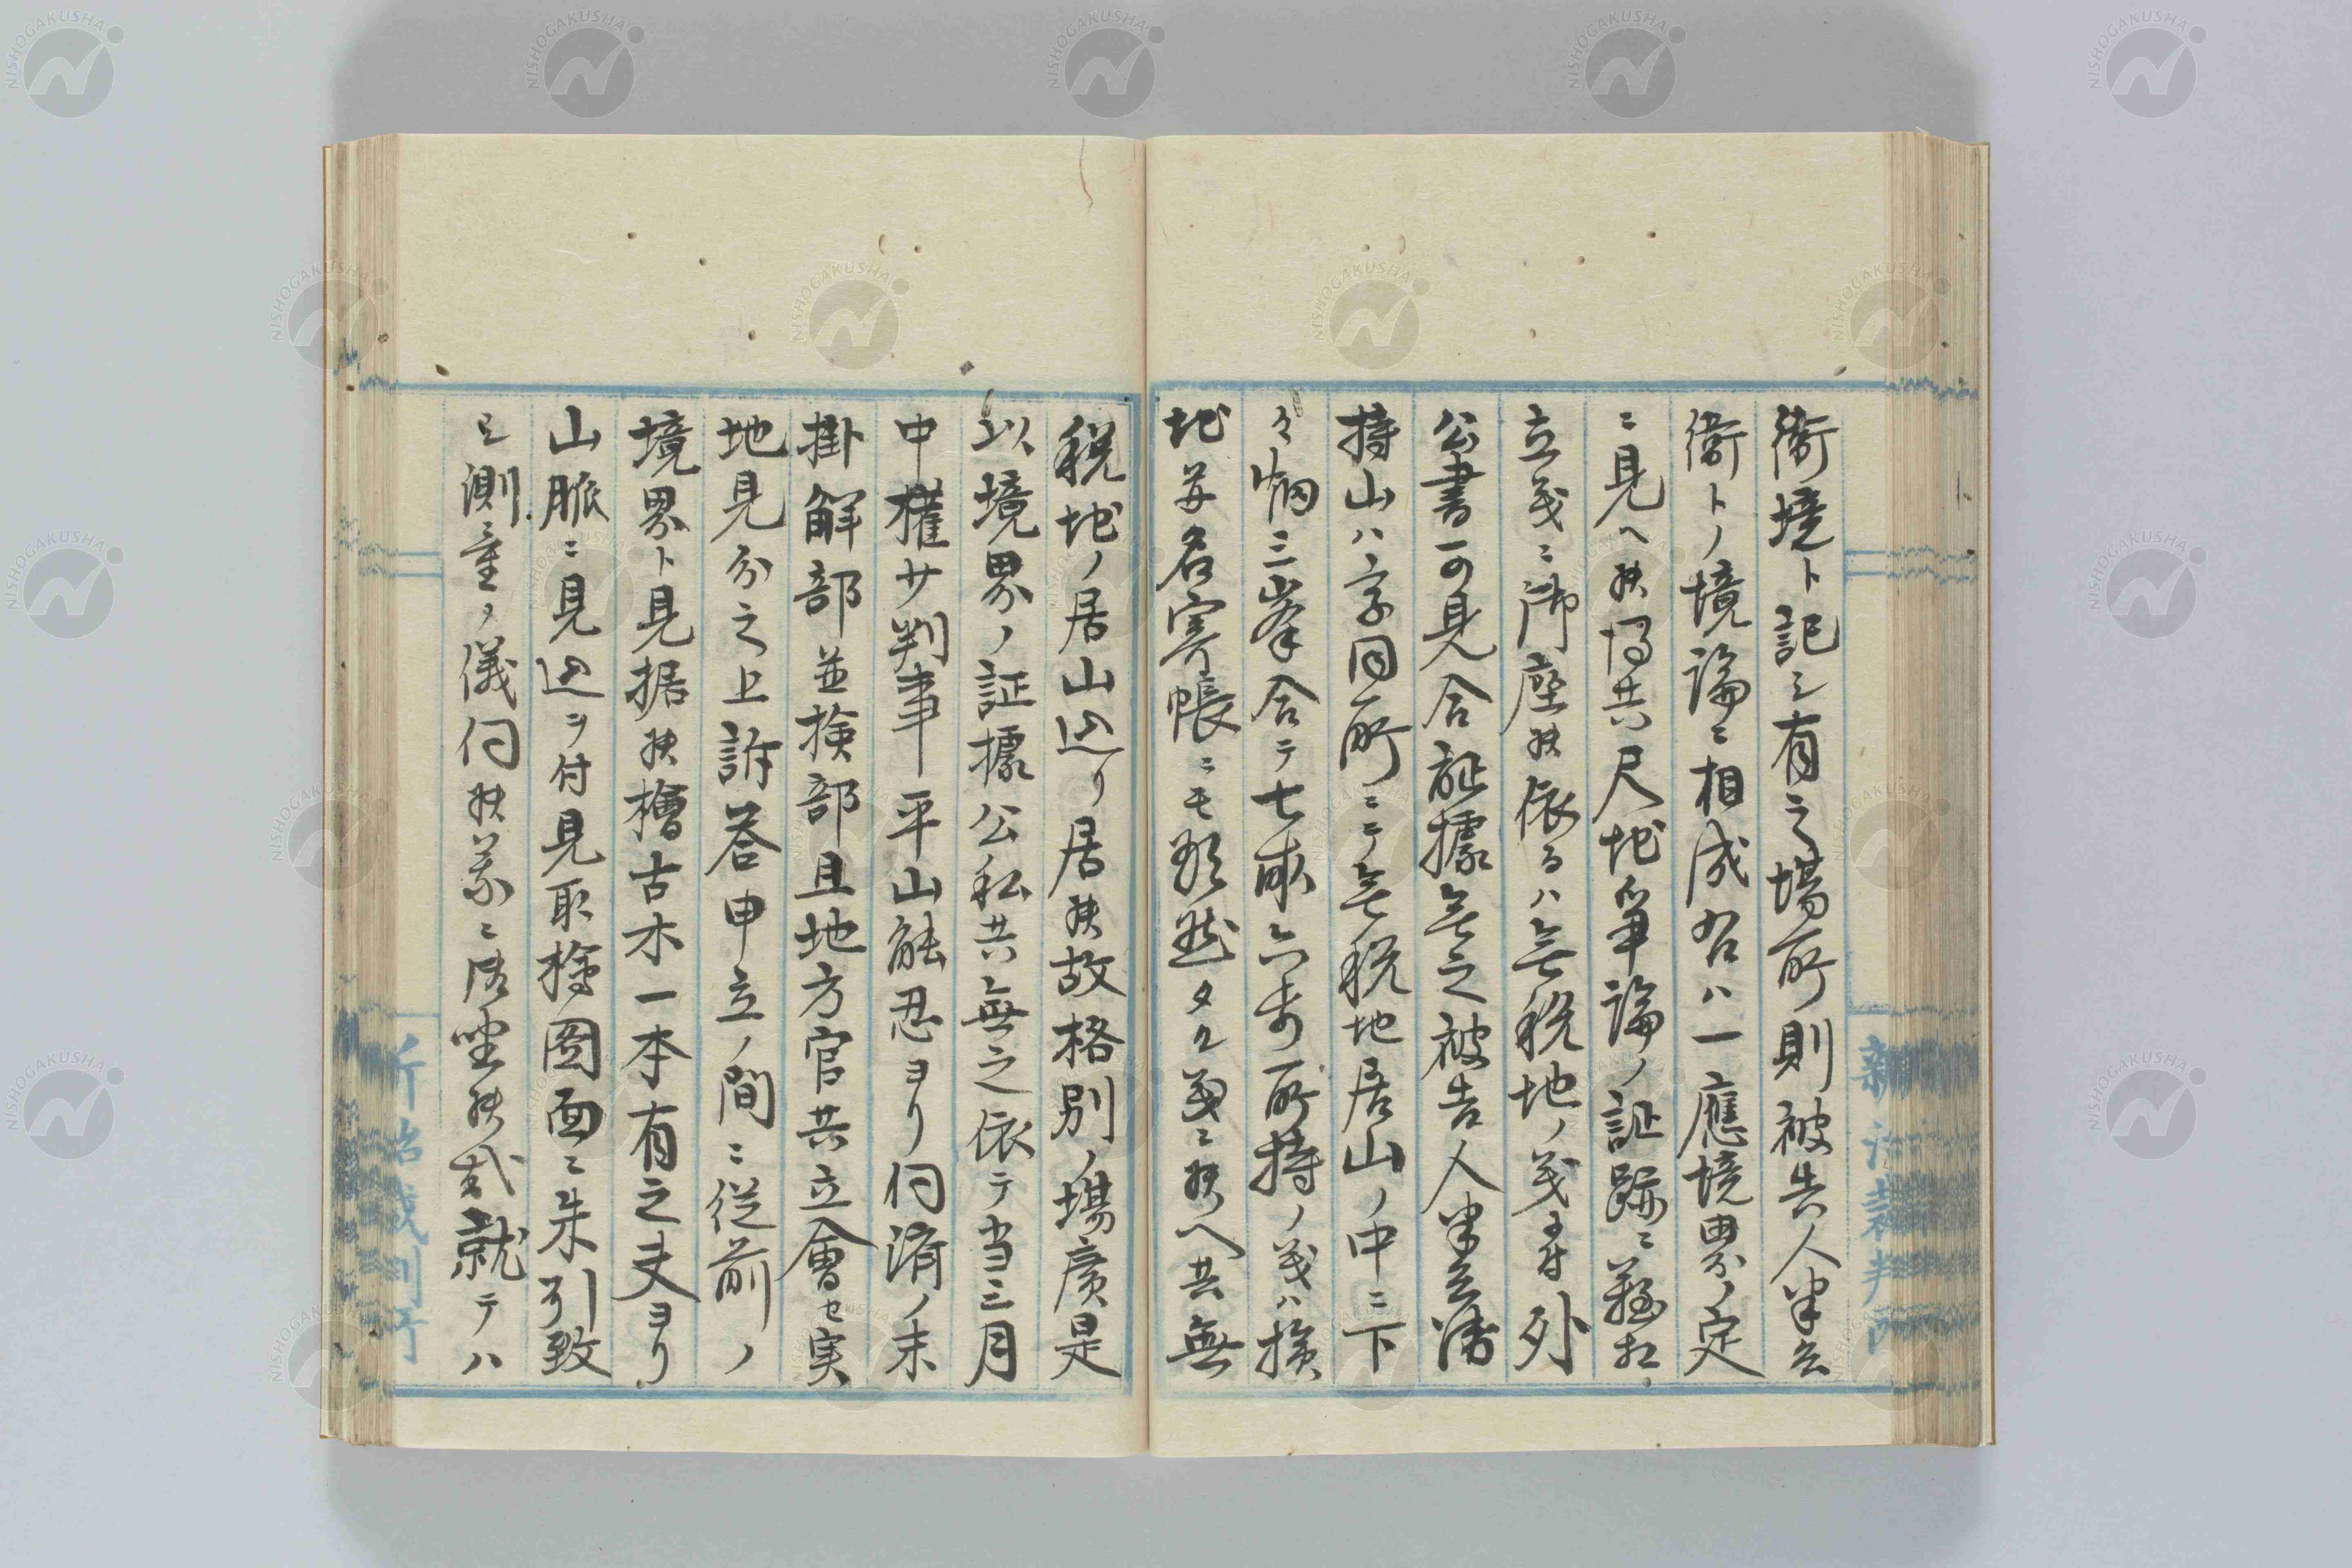 衛境ト記シ有之場所則被告人半兵
衛トノ境論ニ相成居ハ一應境界ノ定
ニ見ヘ候得共尺地爭論ノ証跡ニ難相
立義ニ御座候依るハ無税地ノ義ニ付外
公書可見合証據無之被告人半兵衛
持山ハ字同所ニテ無税地居山ノ中ニ下
々畑三峯合テ七畝六歩所持ノ義ハ検
地并名寄帳ニモ判然タル義ニ候ヘ共無
税地ノ居山辺リ居候故格別ノ場廣是
以境界ノ証據公私共無之依テ当三月
中權少判事平山能忍ヨリ伺済ノ末
掛解部並検部且地方官共立會セ実
地見分之上訴答申立ノ間ニ従前ノ
境界ト見据候檜古木一本有之夫ヨリ
山脈ニ見込ヲ付見取繪圖面ニ朱引致
シ測量ノ儀伺候義ニ御座候就テハ
新治裁判所
NISHOGAKUSHA